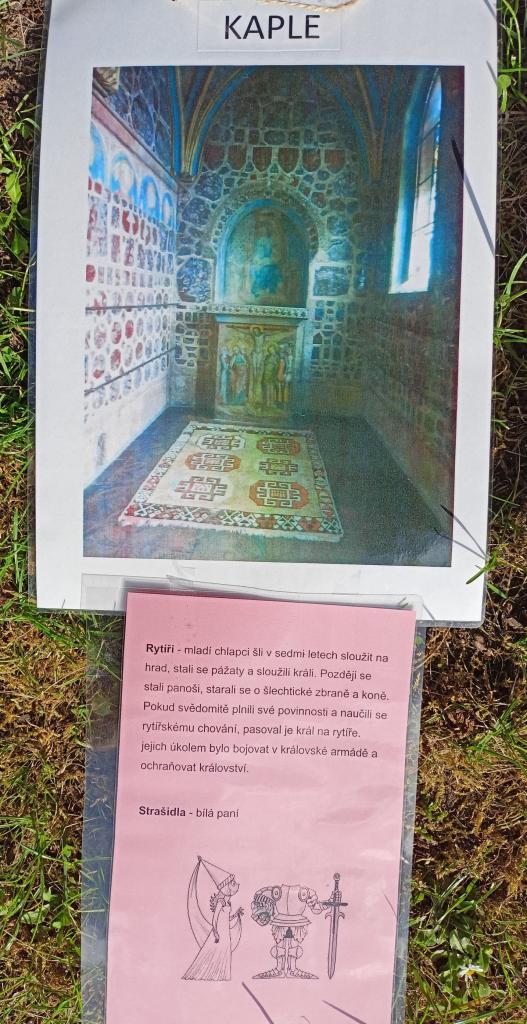 KAPLE
Rytíři - mladí chlapci šli v sedmi letech sloužit na
hrad, stali se pážaty a sloužili králi. Později se
stali panoši, starali se o šlechtické zbraně a koně.
Pokud svědomitě plnili své povinnosti a naučili se
rytířskému chování, pasoval je král na rytíře.
jejich úkolem bylo bojovat v královské armádě a
ochraňovat království.
Strašidla - bílá paní